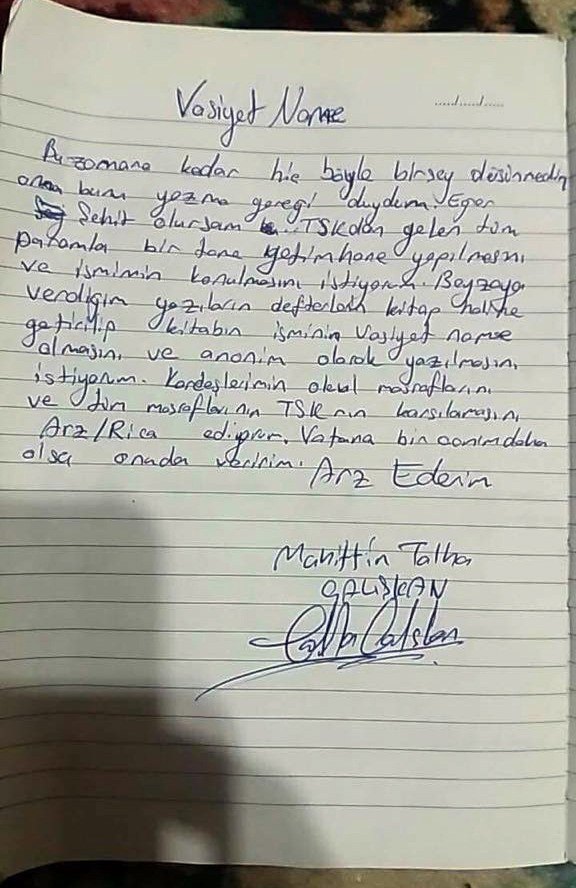 Vasiyet Name
..../..../....
Bu zamana kadar hiç böyle birşey düşünmedim
ama bunu yazma gereği duydum. Eğer
Şehit olursam TSKdan gelen tüm
Paramla bir tane yetimhane yapılmasını
ve ismimin konulmasını istiyorum. Beyzaya
verdiğim yazıların defterlerin kitap haline
getirilip kitabın isminin Vasiyet name
olmasını ve anonim olarak yazılmasını
istiyorum. Kardeşlerimin okul masraflarını
ve tüm masraflarının TSK nın karşılamasını
Arz/Rica ediyorum. Vatana bin canım daha
olsa onuda veririm. Arz Ederim
Muhittin Talha
ÇALIŞKAN